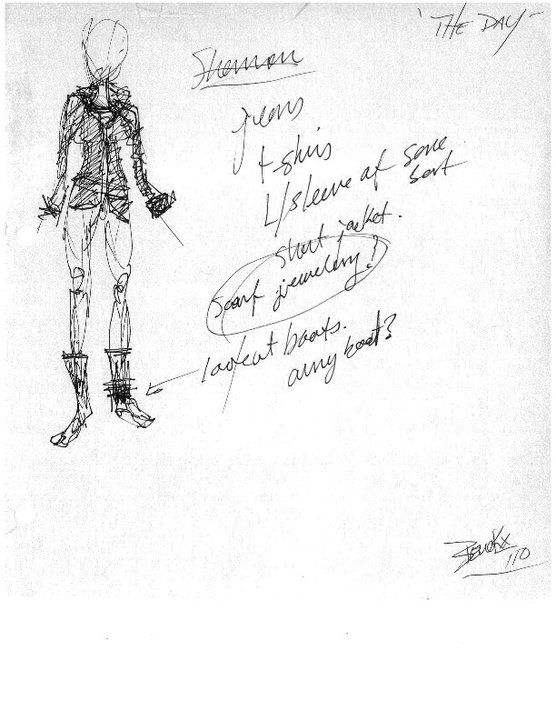 'THE DAY'
Shannon
jeans
t-shirts
L/sleeve of some
sort
short jacket.
scarf jewellery?
lowcut boots.
army boot?
110